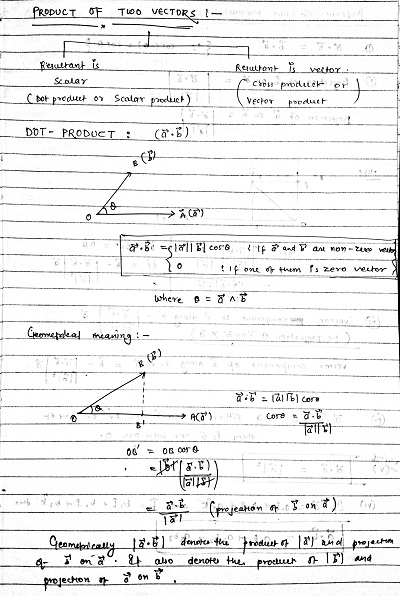 PRODUCT OF TWO VECTORS :-
Resultant is
Scalar
(Dot product or Scalar product)
Resultant is vector.
(Cross product or
Vector product)
DOT- PRODUCT : (a⃗·b⃗)
B (b⃗)
O θ A⃗(a⃗)
a⃗·b⃗ = { |a⃗||b⃗| cosθ ; if a⃗ and b⃗ are non-zero vector
0 ; if one of them is zero vector }
where θ = a⃗ ∧ b⃗
Geometrical meaning :-
B (b⃗)
O θ B' A(a⃗)
a⃗·b⃗ = |a⃗||b⃗| cosθ
cosθ = a⃗·b⃗ / |a⃗||b⃗|
OB' = OB cosθ
= |b⃗| (a⃗·b⃗) / (|a⃗||b⃗|)
= a⃗·b⃗ / |a⃗| (projection of b⃗ on a⃗)
Geometrically |a⃗·b⃗| denotes the product of |a⃗| and projection
of b⃗ on a⃗. It also denotes the product of |b⃗| and
projection of a⃗ on b⃗.